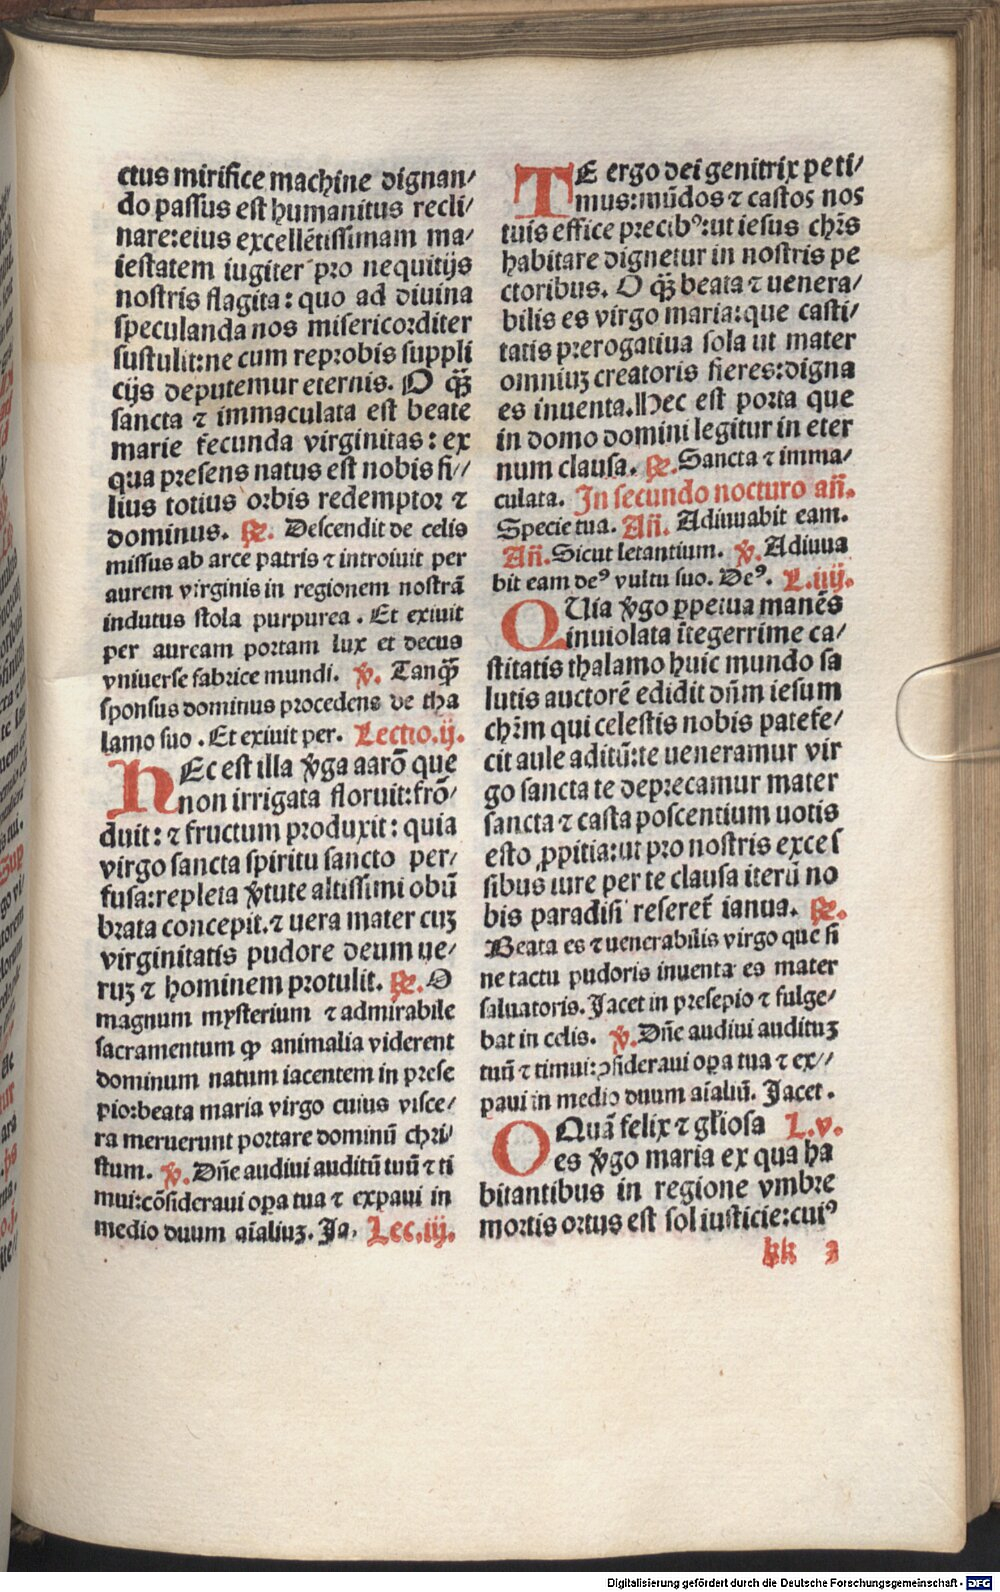 ctus mirifice machine dignan⸗
do passus est humanitus recli⸗
nare:eius excellētissimam ma⸗
iestatem iugiter pro nequitijs
nostris flagita: quo ad diuina
speculanda nos misericorditer
sustulit:ne cum reprobis suppli
cijs deputemur eternis. O qᷓꝫ
sancta ⁊ immaculata est beate
marie fecunda virginitas: ex
qua presens natus est nobis fi⸗
lius totius orbis redemptor ⁊
dominus. ℟. Descendit de celis
missus ab arce patris ⁊ introiuit per
aurem virginis in regionem nostrā
indutus stola purpurea. Et exiuit
per auream portam lux et decus
vniuerse fabrice mundi. ℣. Tanqᷓꝫ
sponsus dominus procedens de tha
lamo suo. Et exiuit per. Lectio.ij.
HEc est illa v̄ga aarō que
non irrigata floruit:frō⸗
duit: ⁊ fructum produxit: quia
virgo sancta spiritu sancto per⸗
fusa:repleta v̄tute altissimi obū
brata concepit.⁊ uera mater cuꝫ
virginitatis pudore deum ue⸗
ruꝫ ⁊ hominem protulit. ℟. O
magnum mysterium ⁊ admirabile
sacramentum ꝙ animalia viderent
dominum natum iacentem in prese
pio:beata maria virgo cuius visce⸗
ra meruerunt portare dominū chri⸗
stum. ℣. Dn̄e audiui auditū tuū ⁊ ti
mui:cōsideraui oꝑa tua ⁊ expaui in
medio duum aīaliuꝫ. Ja. Lec.iij.
TE ergo dei genitrix peti⸗
mus:mūdos ⁊ castos nos
tuis effice precibꝰ:ut iesus chr̄s
habitare dignetur in nostris pe
ctoribus. O qᷓꝫ beata ⁊ uenera⸗
bilis es virgo maria:que casti⸗
tatis prerogatiua sola ut mater
omniuꝫ creatoris fieres:digna
es inuenta.Hec est porta que
in domo domini legitur in eter
num clausa. ℟. Sancta ⁊ imma⸗
culata. In secundo nocturo an̄.
Specie tua. An̄. Adiuuabit eam.
An̄. Sicut letantium. ℣. Adiuua
bit eam deꝰ vultu suo. Deꝰ. L.iiij.
QUia v̄go ꝑpetua manēs
inuiolata ītegerrime ca⸗
stitatis thalamo huic mundo sa
lutis auctorē edidit dn̄m iesum
chr̄m qui celestis nobis patefe⸗
cit aule aditū:te ueneramur vir
go sancta te deprecamur mater
sancta ⁊ casta poscentium uotis
esto ꝓpitia:ut pro nostris exces
sibus iure per te clausa iterū no
bis paradisi reseret̄ ianua. ℟.
Beata es ⁊ uenerabilis virgo que si
ne tactu pudoris inuenta es mater
saluatoris. Jacet in presepio ⁊ fulge⸗
bat in celis. ℣. Dn̄e audiui audituꝫ
tuū ⁊ timui:ꝯsideraui oꝑa tua ⁊ ex⸗
paui in medio duum aīaliū. Jacet.
OQuā felix ⁊ gl̄iosa L.v.
es v̄go maria ex qua ha
bitantibus in regione vmbre
mortis ortus est sol iusticie:cuiꝰ
kk 3
Digitalisierung gefördert durch die Deutsche Forschungsgemeinschaft - DFG